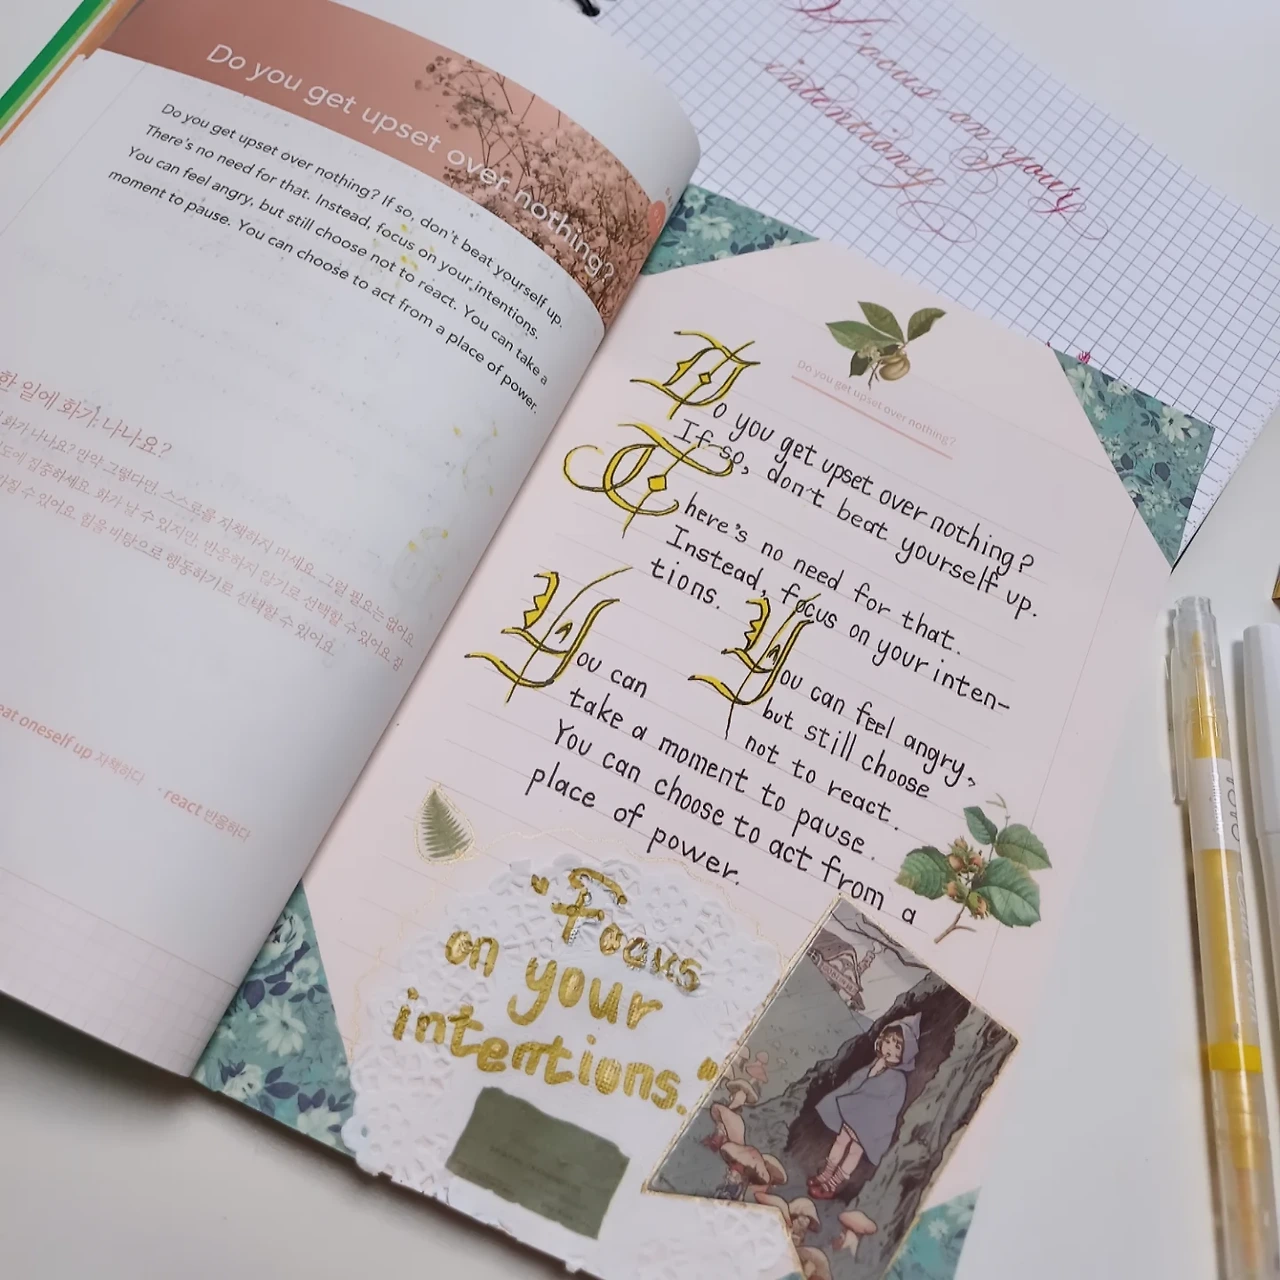 Do you get upset over nothing?
Do you get upset over nothing? If so, don't beat yourself up.
There's no need for that. Instead, focus on your intentions.
You can feel angry, but still choose not to react. You can take a
moment to pause. You can choose to act from a place of power.
한 일에 화가 나나요?
화가 나나요? 만약 그렇다면, 스스로를 자책하지 마세요. 그럴 필요는 없어요
도에 집중하세요. 화가 날 수 있지만, 반응하지 않기로 선택할 수 있어요. 잠
가질 수 있어요. 힘을 바탕으로 행동하기로 선택할 수 있어요.
eat oneself up 자책하다 · react 반응하다
Focus on your
intentions
Do you get upset over nothing?
Do you get upset over nothing?
If so, don't beat yourself up.
There's no need for that.
Instead, focus on your inten-
tions.
You can feel angry,
but still choose
not to react.
You can
take a moment to pause.
You can choose to act from a
place of power.
"Focus
on your
intentions."